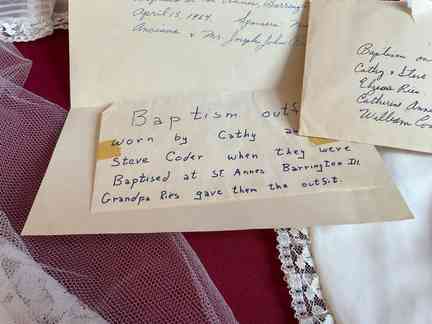 April 15, 1964. Sponsors
& Mr. Joseph John
Baptism outf
worn by Cathy a
Steve Coder when they were
Baptised at St. Annes Barrington Ill.
Grandpa Ries gave them the outfit.
Baptism on
Cathy & Steve
Elyssa Ries
Catherine Anne
William Co